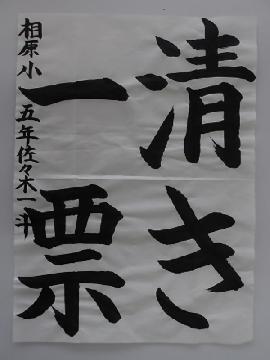 清き
一票
相原小 五年 佐々木一斗